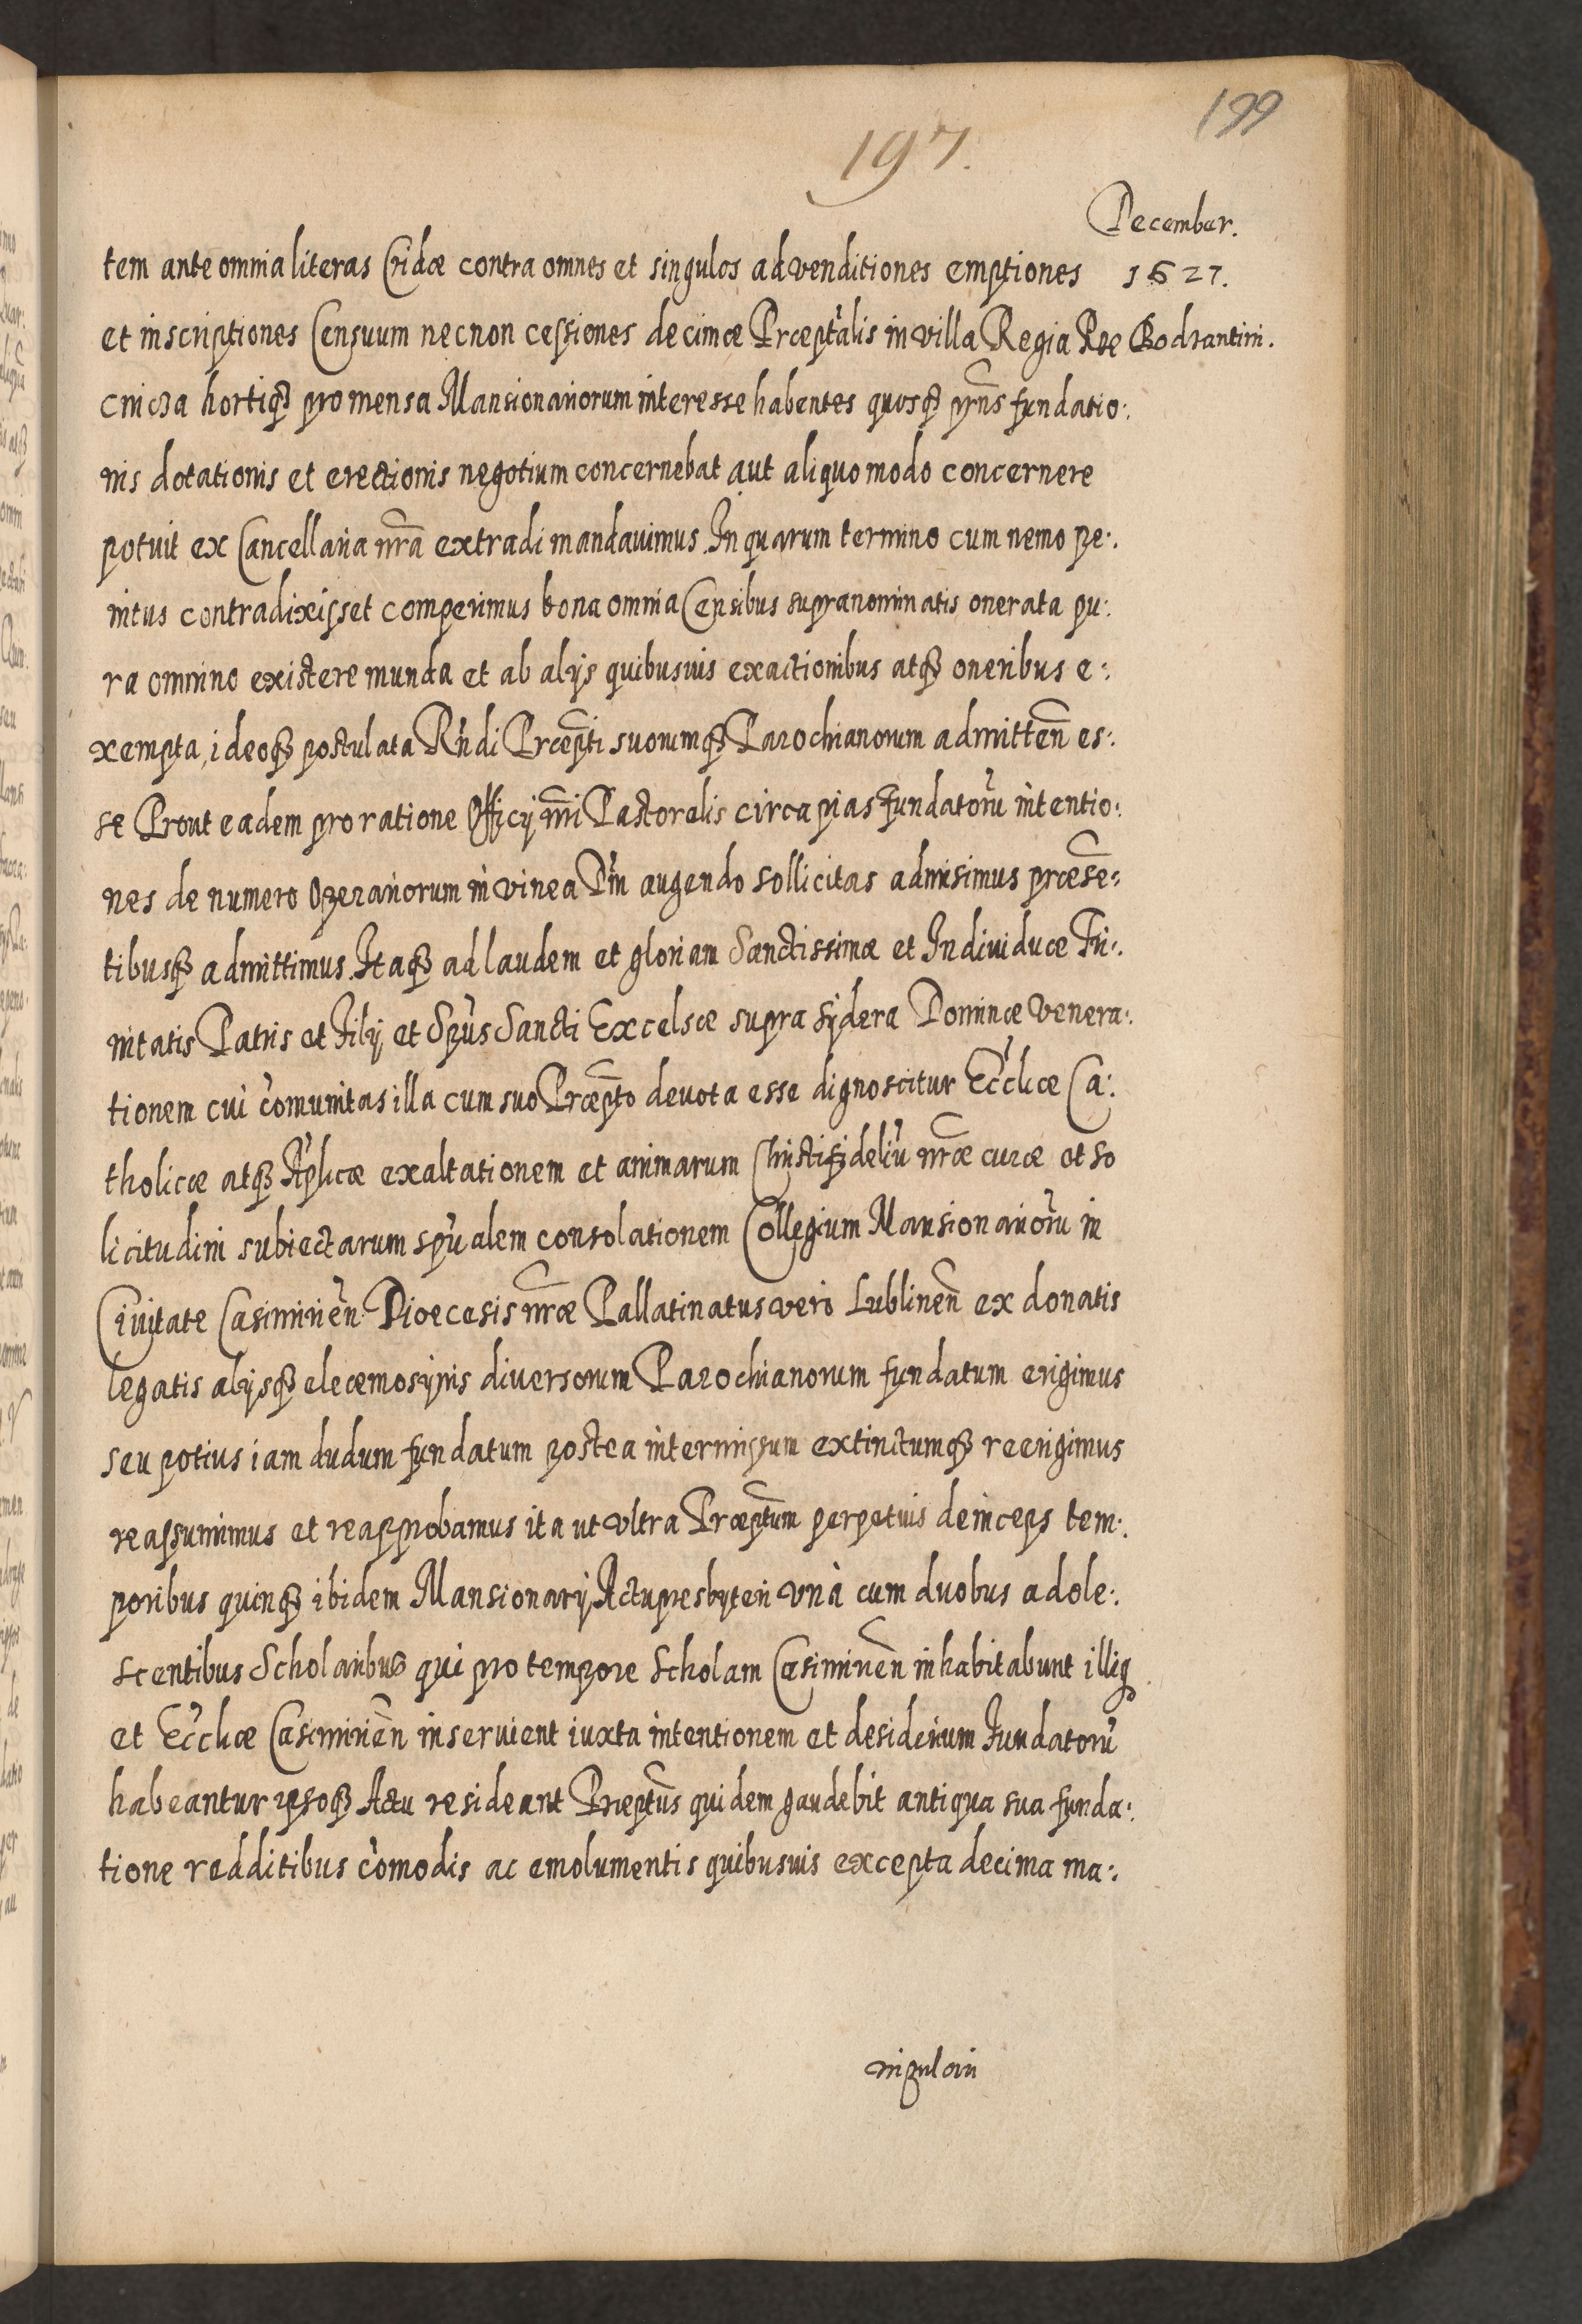 199
197.
December.
tem ante omnia literas Cridæ contra omnes et singulos ad venditiones emptiones 1627.
et inscriptiones Censuum necnon cessiones decimæ Præptalis in villa Regia Rze Bodzantini.
cnicza hortiq́ꝫ pro mensa Mansionariorum interesse habentes quosq́ꝫ pr̃ns fundatio:
nis dotationis et erectionis negotium concernebat aut aliquo modo concernere
potuit ex Cancellaria nr̃a extradi mandauimus. In quarum termino cum nemo pe:
nitus contradixisset comperimus bona omnia Censibus supranominatis onerata pu:
ra omnino existere munda et ab alijs quibusuis exactionibus atq́ꝫ oneribus e:
xempta, ideoq́ꝫ postulata Rñdi Præpti suorumq́ꝫ Parochianorum admitteñ es:
se Prout eadem pro ratione Officij nr̃i Pastoralis circa pias Fundatorũ intentio:
nes de numero Operariorum in vinea Dñi augendo sollicitas admisimus præsẽ:
tibusq́ꝫ admittimus. Itaq́ꝫ ad laudem et gloriam Sanctissimæ et Indiuiduæ Tri:
nitatis Patris et Filij et Spũs Sancti Excelsæ supra sydera Dominæ venera:
tionem cui cõmunitas illa cum suo Præpto deuota esse dignoscitur Ecc̃liæ Ca:
tholicæ atq́ꝫ Ap̃licæ exaltationem et animarum Christifideliũ nr̃æ curæ et so
licitudini subiectarum spũalem consolationem Collegium Mansionariorũ in
Ciuitate Casimirieñ. Dioecesis nr̃æ Pallatinatus vero Lublineñ ex donatis
legatis alijsq́ꝫ eleemosynis diversorum Parochianorum fundatum erigimus
seu potius iam dudum fundatum postea intermissum extinctumq́ꝫ reerigimus
reassumimus et reapprobamus ita ut vltra Præptum perpetuis deinceps tem:
poribus quinq́ꝫ ibidem Mansionarij Actu presbyteri vnà cum duobus adole:
scentibus Scholaribus qui pro tempore Scholam Casimirieñ inhabitabunt illiq
et Ecc̃liæ Casimirieñ inseruient iuxta intentionem et desiderium Fundatorũ
habeantur ipsoq́ꝫ Actu resideant Præptus quidem gaudebit antiqua sua funda:
tione redditibus cõmodis ac emolumentis quibusuis excepta decima ma: